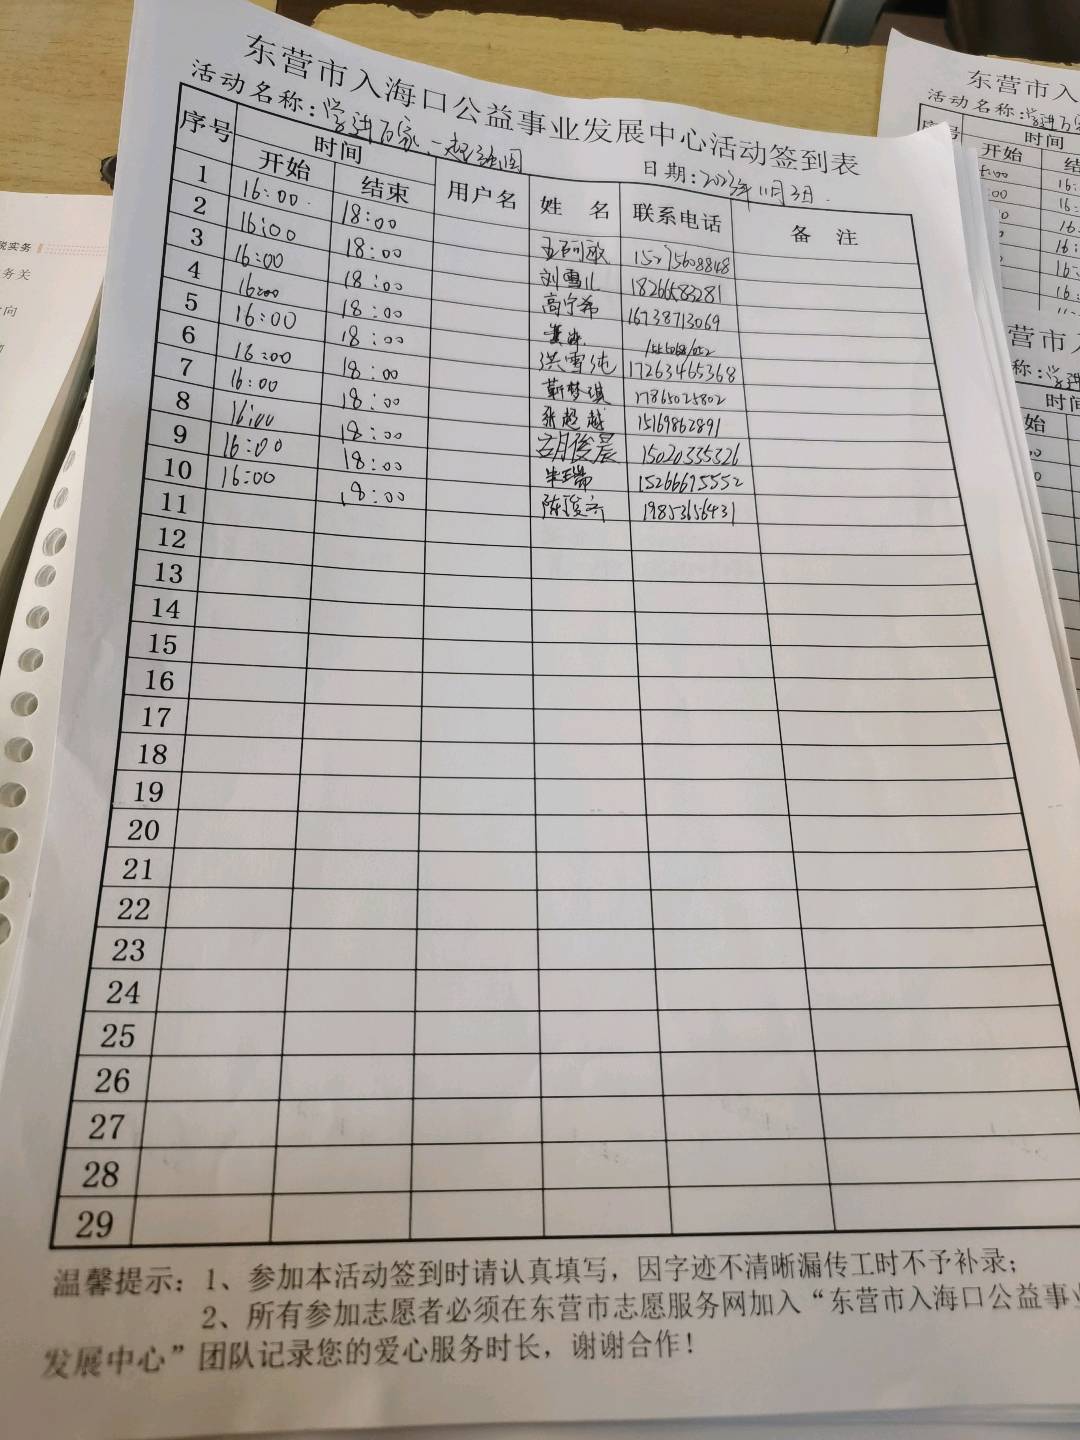 东营市入海口公益事业发展中心活动签到表
活动名称:学进万家、一起 日期:2023年11月3日.
序号 时间 用户名 姓 名 联系电话 备 注
开始 结束
1 16:00 18:00
2 16:00 18:00 刘雪儿 18266583281
3 16:00 18:00 高宁希 16738713069
4 16:00 18:00
5 16:00 18:00 洪雪纯 17263465368
6 16:00 18:00 靳梦琪 17865025802
7 16:00 18:00 张超越 15169862891
8 16:00 18:00 胡俊晨 15020335326
9 16:00 18:00 15266615552
10 16:00 18:00 19853656431
11
12
13
14
15
16
17
18
19
20
21
22
23
24
25
26
27
28
29
温馨提示:1、参加本活动签到时请认真填写，因字迹不清晰漏传工时不予补录;
2、所有参加志愿者必须在东营市志愿服务网加入“东营市入海口公益事业
发展中心”团队记录您的爱心服务时长，谢谢合作!
东营市入
活动名称:学进万家
序号 时间
开始 结
营市入
称:学进
时间
始
税实务
务关
向